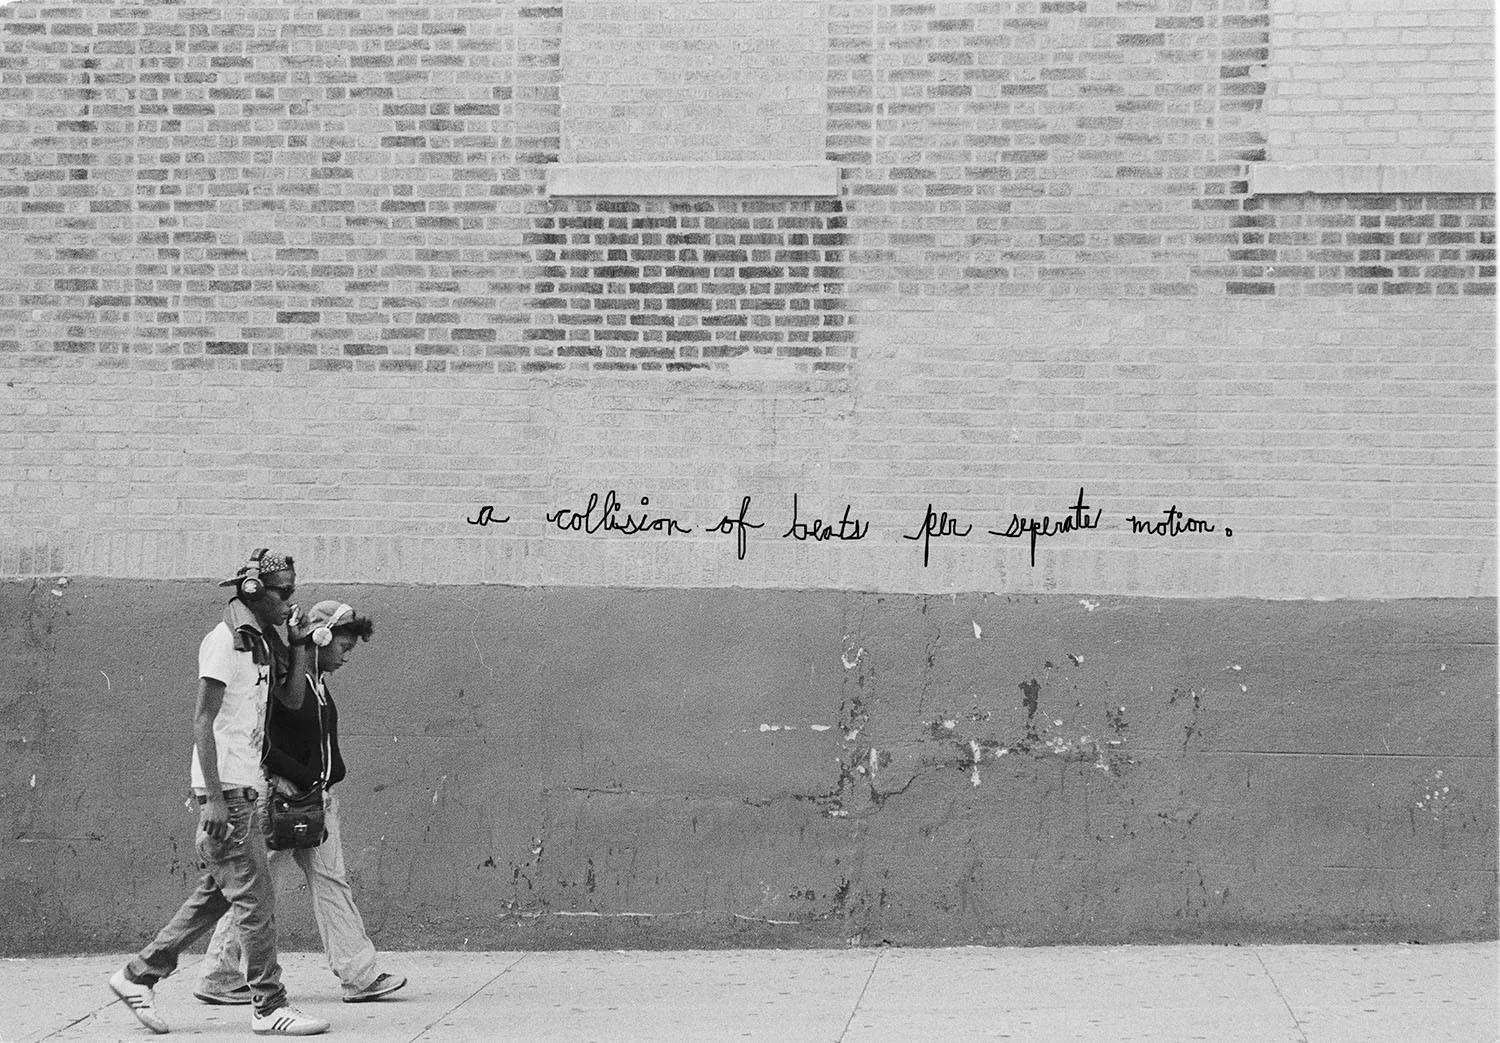 a collision of beats per seperate motion.